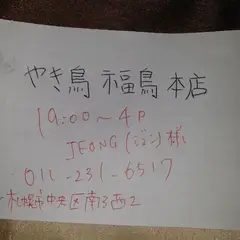 やき鳥 福鳥 本店
19:00～4P
JEONG(ジョン)様
011-231-6517
札幌市中央区南3西2